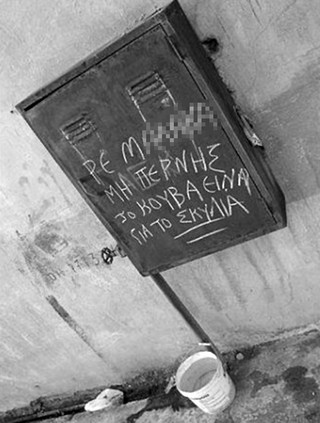 ΡΕ Μ
ΜΗ ΠΕΡΝΗΣ
ΤΟ ΚΟΥΒΑ ΕΙΝΑΙ
ΓΙΑ ΤΟ ΣΚΥΛΙΑ